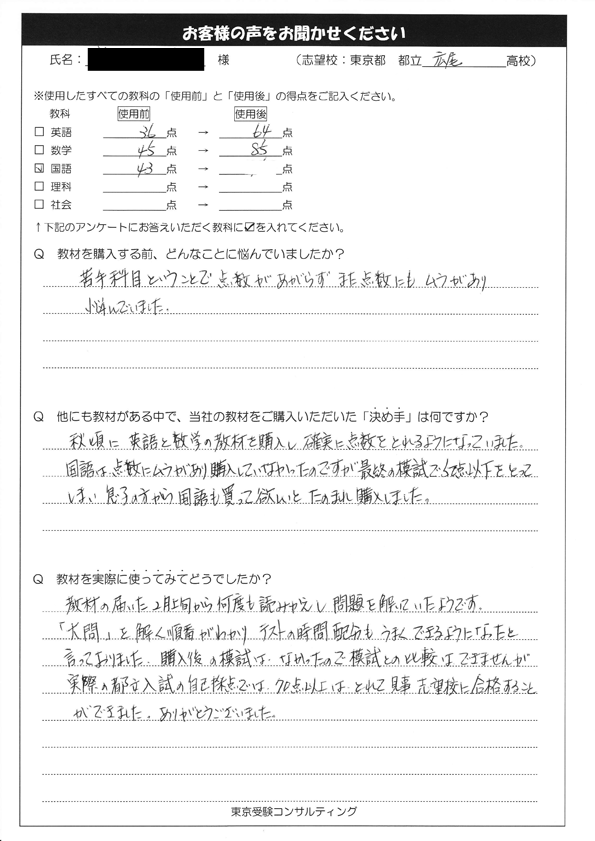 お客様の声をお聞かせください
氏名： 様 （志望校：東京都 都立 広尾 高校）
※使用したすべての教科の「使用前」と「使用後」の得点をご記入ください。
教科 使用前 使用後
□ 英語 36 点 → 64 点
□ 数学 45 点 → 85 点
☑ 国語 43 点 → 点
□ 理科 点 → 点
□ 社会 点 → 点
↑下記のアンケートにお答えいただく教科に☑を入れてください。
Q 教材を購入する前、どんなことに悩んでいましたか？
苦手科目ということで点数があがらず また点数にもムラがあり
悩んでいました.
Q 他にも教材がある中で、当社の教材をご購入いただいた「決め手」は何ですか？
秋頃に 英語と数学の教材を購入し 確実に点数をとれるようになっていました。
国語は点数にムラがあり購入していなかったのですが最終の模試で50点以下をとって
しまい 息子の方から国語も買って欲しいと たのまれ購入しました。
Q 教材を実際に使ってみてどうでしたか？
教材の届いた2月上旬から何度も読みかえし 問題を解いていたようです.
「大問」を解く順番がわかり テストの時間配分も うまくできるようになったと
言っておりました. 購入後の模試は なかったので模試との比較はできませんが
実際の都立入試の自己採点では、70点以上は とれて 見事 志望校に合格すること
ができました。ありがとうございました。
東京受験コンサルティング